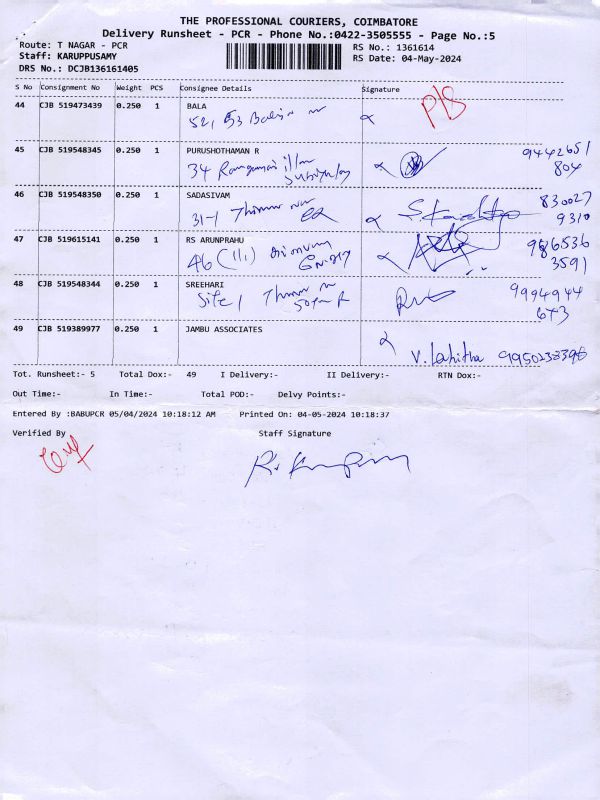 THE PROFESSIONAL COURIERS, COIMBATORE
Delivery Runsheet - PCR - Phone No.:0422-3505555 - Page No.:5
Route: T NAGAR - PCR
RS No.: 1361614
Staff: KARUPPUSAMY
RS Date: 04-May-2024
DRS No.: DCJB136161405
S No Consignment No Weight PCS Consignee Details Signature
44 CJB 519473439 0.250 1 BALA
P/S
45 CJB 519548345 0.250 1 PURUSHOTHAMAN R
34
9442651
804
46 CJB 519548350 0.250 1 SADASIVAM
31-1
830027
9310
47 CJB 519615141 0.250 1 RS ARUNPRAHU
46 (111)
986536
3591
48 CJB 519548344 0.250 1 SREEHARI
Site 1
9994944
643
49 CJB 519389977 0.250 1 JAMBU ASSOCIATES
V. Lalitha
Tot. Runsheet:- 5 Total Dox:- 49 I Delivery:- II Delivery:- RTN Dox:-
Out Time:- In Time:- Total POD:- Delvy Points:-
Entered By :BABUPCR 05/04/2024 10:18:12 AM Printed On: 04-05-2024 10:18:37
Verified By Staff Signature